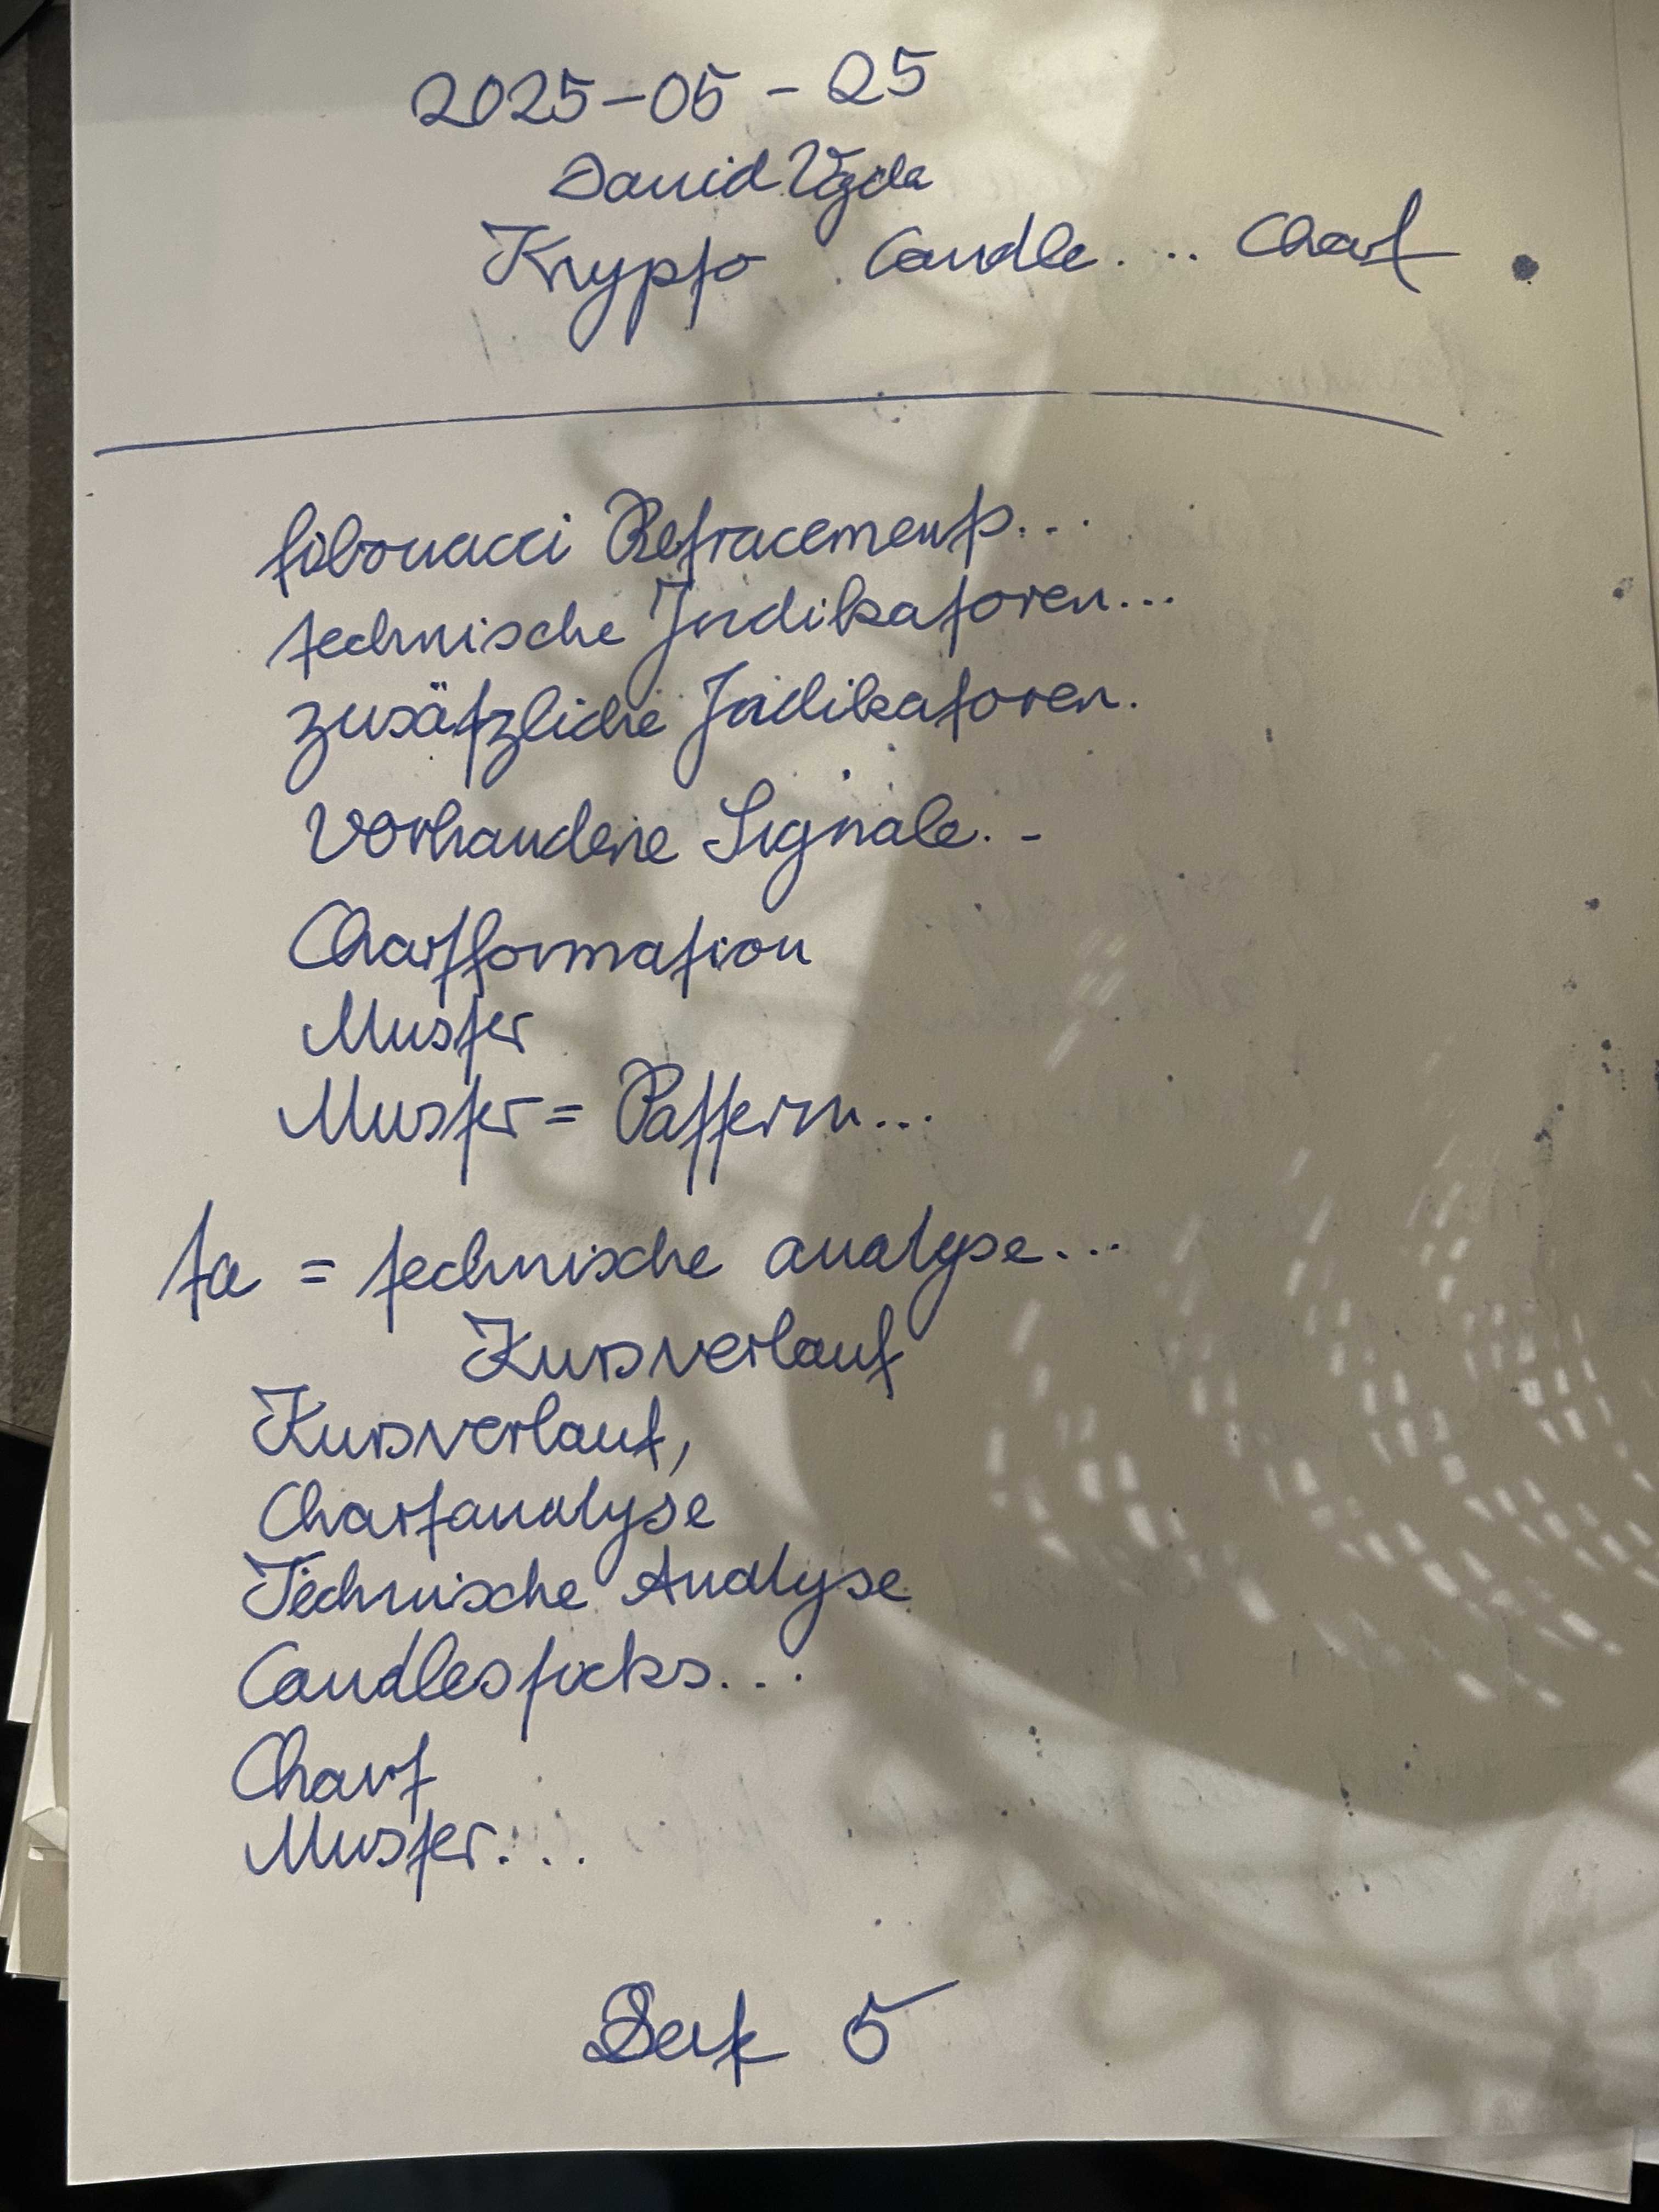 2025-05-25
David Vajda
Krypto Candle.... Chart.
fibonacci Retracements...
technische Indikatoren...
zusätzliche Indikatoren.
Vorhandene Signale..
Chartformation
Muster
Muster = Pattern...
ta = technische analyse...
Kursverlauf
Kursverlauf,
Chartanalyse
Technische Analyse
Candlesticks...
Chart
Muster...
5